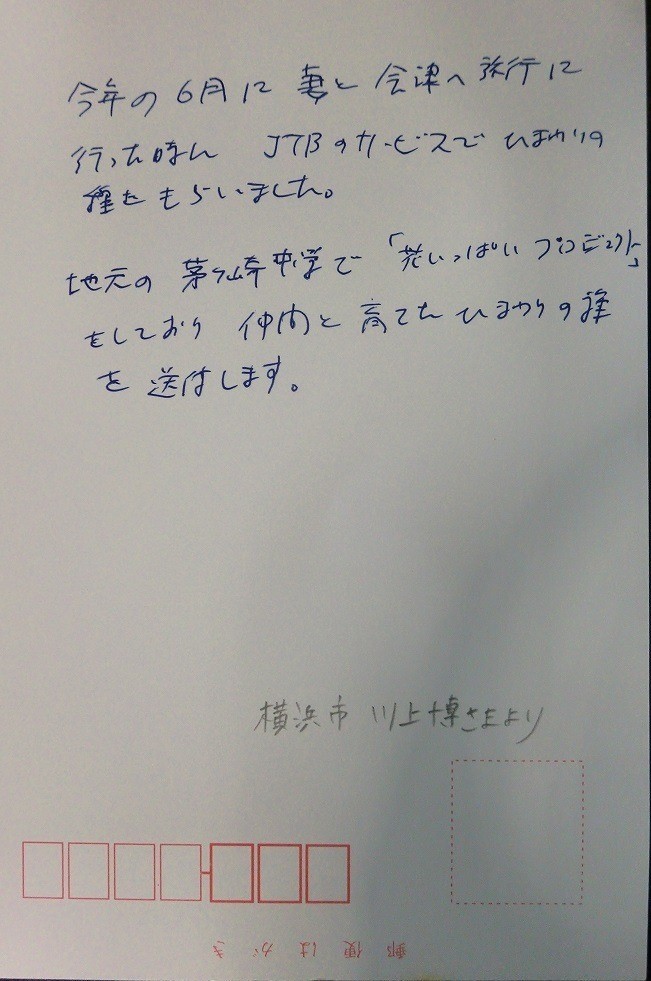 今年の6月に 妻と 会津へ 旅行に
行った時に JTBのサービスで ひまわりの
種を もらいました。
地元の 茅ヶ崎中学で 「花いっぱい プロジェクト」
をしており 仲間と 育てた ひまわりの種
を 送付します。
横浜市 川上博さまより
郵便はがき